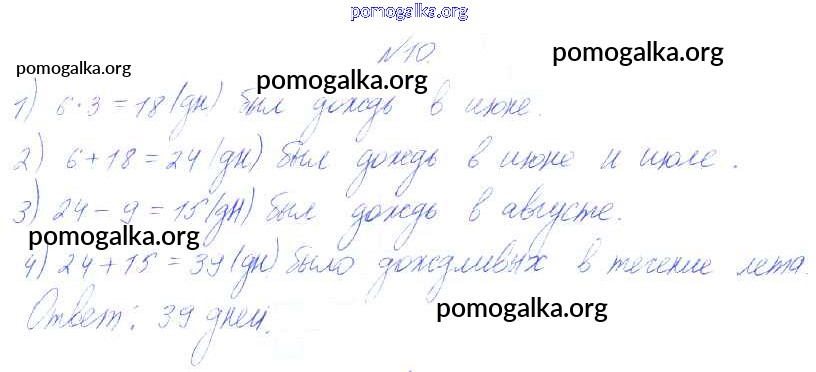 pomogalka.org
№10.
pomogalka.org
pomogalka.org
pomogalka.org
1) 6·3=18(дн) был дождь в июне.
2) 6+18=24(дн) был дождь в июне и июле.
3) 24-9=15(дн) был дождь в августе.
pomogalka.org
4) 24+15=39(дн) было дождливых в течение лета.
Ответ: 39 дней.
pomogalka.org